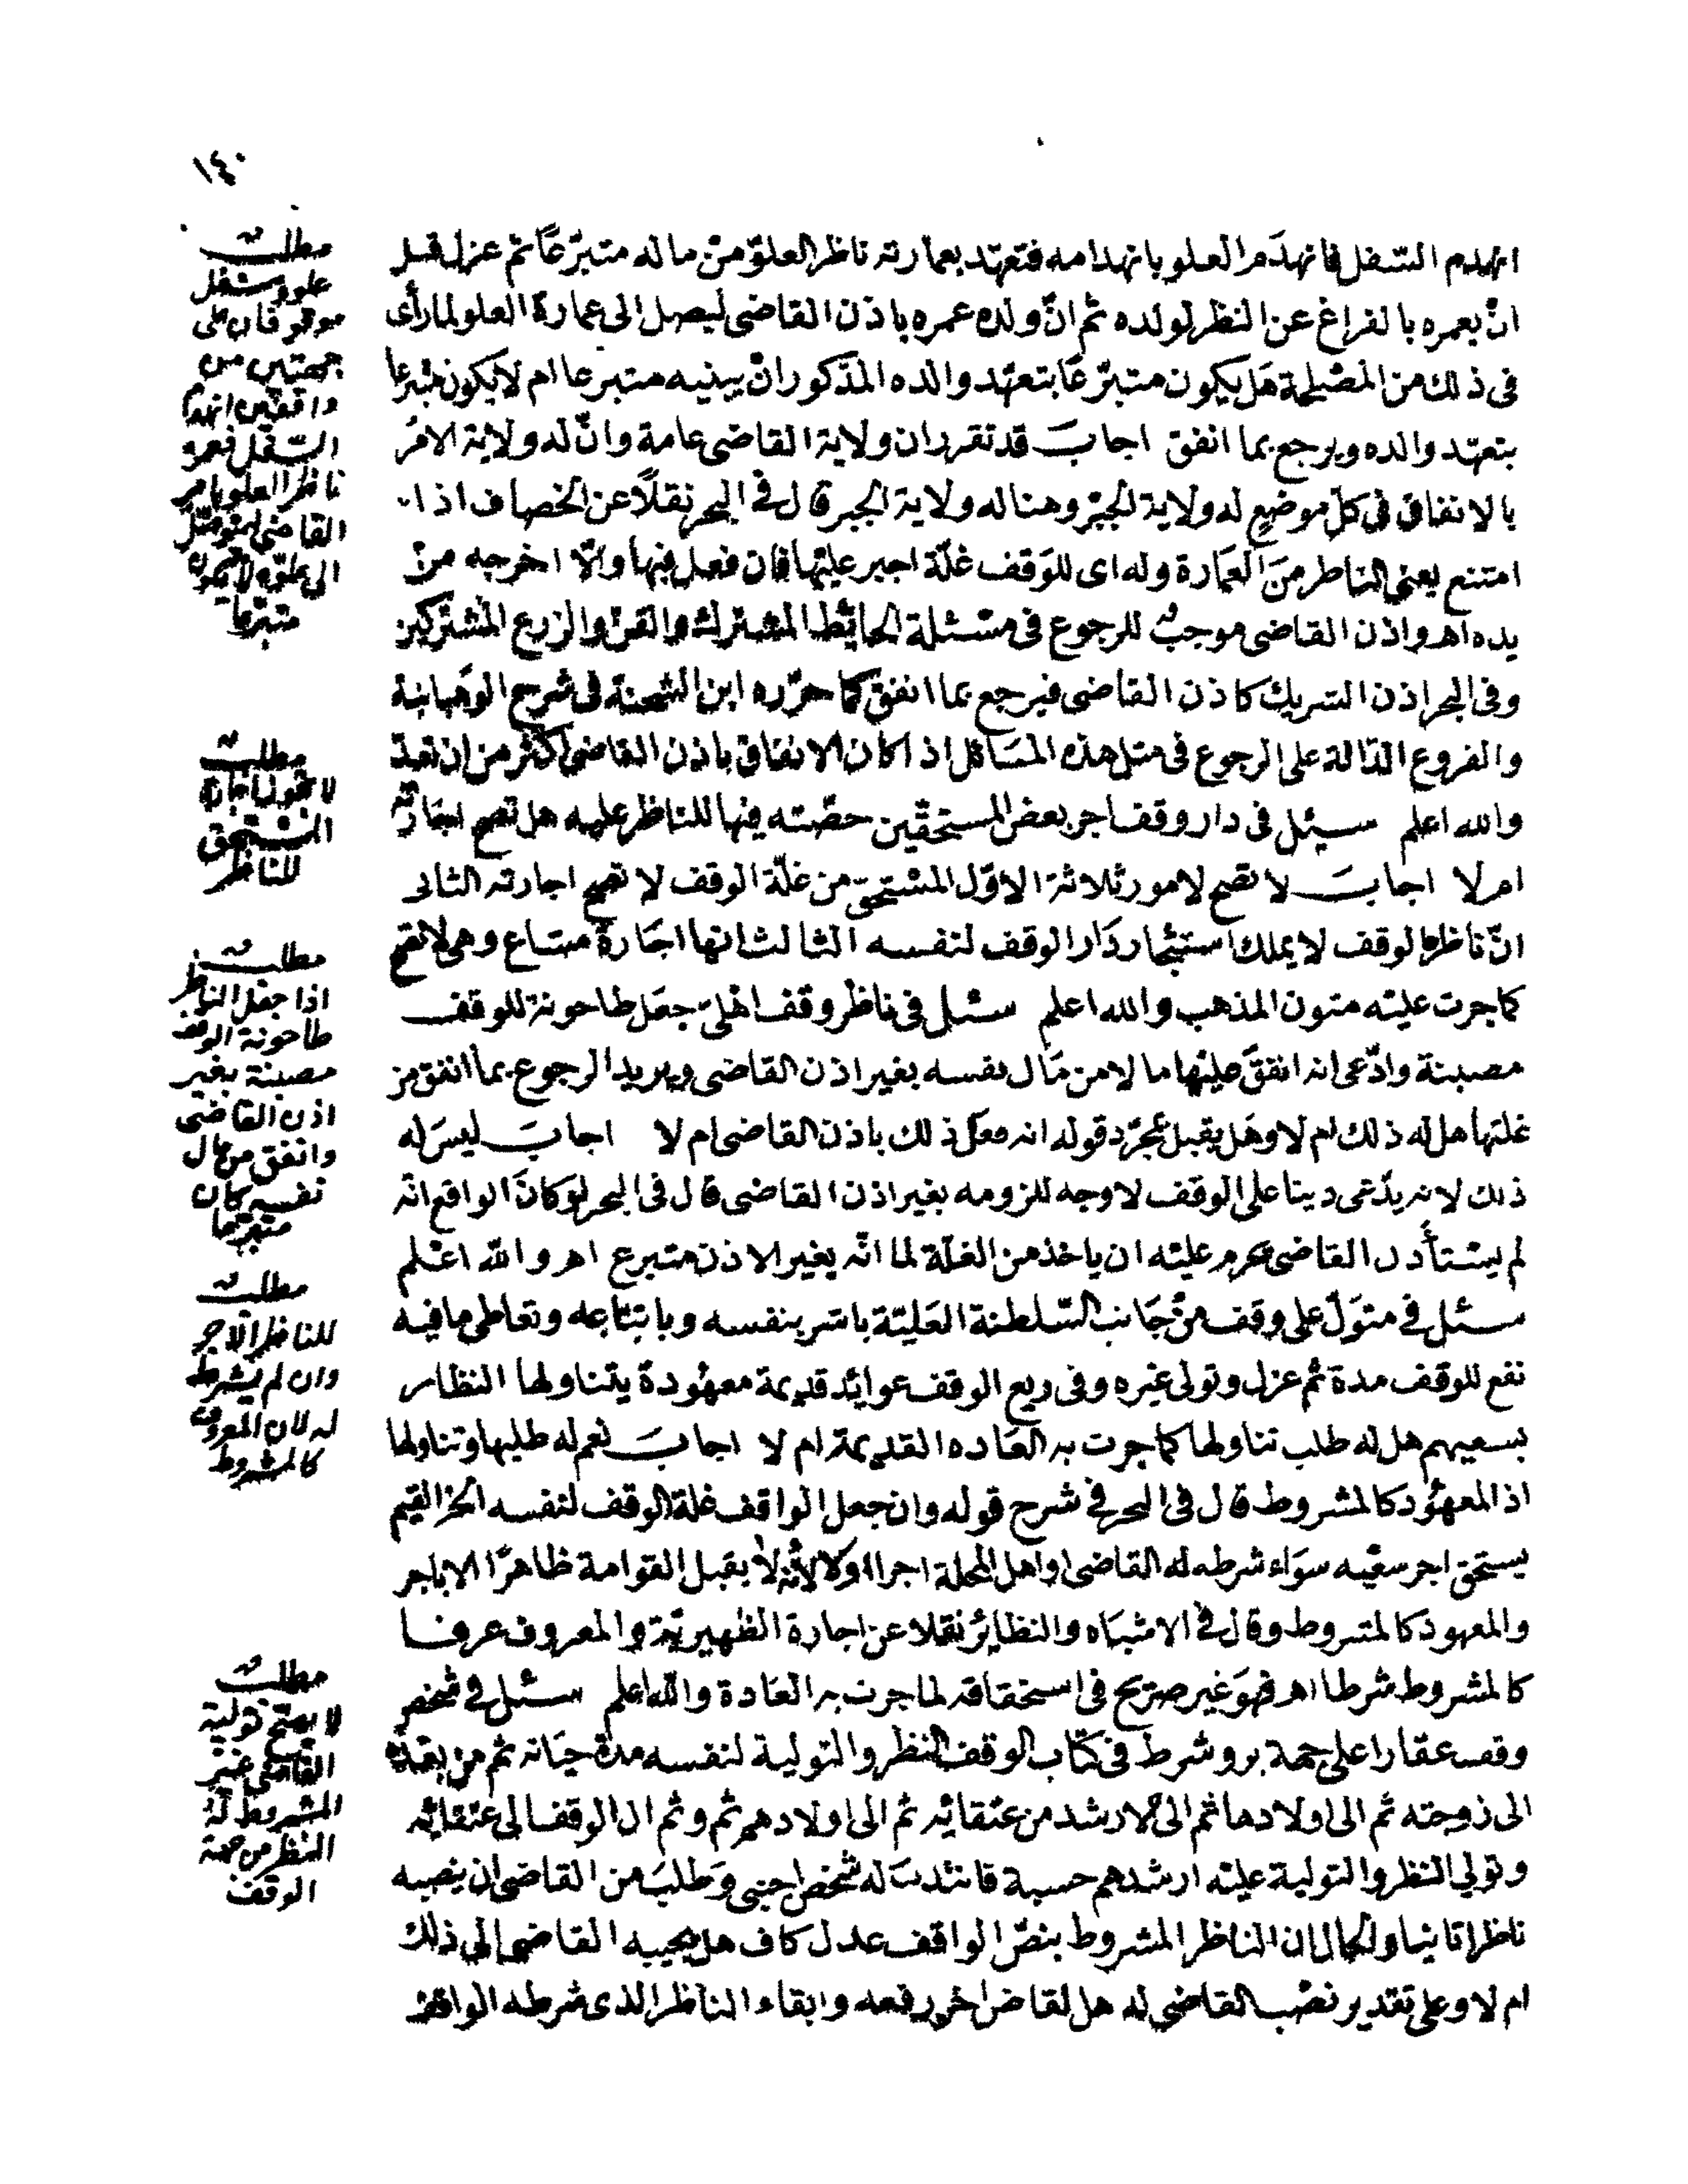 ١٤٠
انهدم السفل فانهدم العلو بانهدامه فتعهد بعمارته ناظر العلو من ماله متبرعا ثم عزل قبل
ان يعمره بالفراغ عن النظر لولده ثم ان ولده عمره باذن القاضى ليصل الى عمارة العلو لما رأى
فى ذلك من المصلحة هل يكون متبرعا بتعهد والده المذكور ان يبنيه متبرعا ام لا يكون متبرعا
بتعهد والده ويرجع بما انفق اجاب قد تقرر ان ولاية القاضى عامة وان له ولاية الامر
بالانفاق فى كل موضع له ولاية الجبر وهنا له ولاية الجبر قال فى البحر نقلا عن الخصاف اذا
امتنع يعنى الناظر من العمارة وله اى للوقف غلة اجبر عليها فان فعل فيها والا اخرجه من
يده اهـ واذن القاضى موجب للرجوع فى مسئلة الحائط المشترك والقن والزرع المشتركين
وفى البحر اذن الشريك كاذن القاضى فيرجع بما انفق كما حرره ابن الشحنة فى شرح الوهبانية
والفروع الدالة على الرجوع فى مثل هذه المسائل اذا كان الانفاق باذن القاضى اكثر من ان تعد
والله اعلم سئل فى دار وقف اجر بعض المستحقين حصته فيها للناظر عليه هل تصح اجارته
ام لا اجاب لا تصح لامور ثلاثة الاول المستحق من غلة الوقف لا تصح اجارته الثانى
ان ناظر الوقف لا يملك استئجار دار الوقف لنفسه الثالث انها اجارة مشاع وهى لا تصح
كما جرت عليه متون المذهب والله اعلم سئل فى ناظر وقف اهلى جعل طاحونة للوقف
مصبنة وادعى انه انفق عليها مالا من مال نفسه بغير اذن القاضى ويريد الرجوع بما انفق من
غلتها هل له ذلك ام لا وهل يقبل بمجرد قوله انه فعل ذلك باذن القاضى ام لا اجاب ليس له
ذلك لانه يدعى دينا على الوقف لا وجه للزومه بغير اذن القاضى قال فى البحر لو كان الواقع انه
لم يستأذن القاضى يحرم عليه ان ياخذ من الغلة لما انه بغير الاذن متبرع اهـ والله اعلم
سئل فى متول على وقف من جانب السلطنة العلية باشر بنفسه وباتباعه وتعاطى ما فيه
نفع للوقف مدة ثم عزل وتولى غيره وفى ريع الوقف عوائد قديمة معهودة يتناولها النظار
بسعيهم هل له طلب تناولها كما جرت به العاده القديمة ام لا اجاب نعم له طلبها وتناولها
اذ المعهود كالمشروط قال فى البحر فى شرح قوله وان جعل الواقف غلة الوقف لنفسه الخ القيم
يستحق اجر سعيه سواء شرطه له القاضى او اهل المحلة اجرا اولا لأنه لا يقبل القوامة ظاهرا الا باجر
والمعهود كالمشروط وقال فى الاشباه والنظائر نقلا عن اجارة الظهيرية والمعروف عرفا
كالمشروط شرطا اهـ فهو غير صريح فى استحقاقه لما جرت به العادة والله اعلم سئل فى شخص
وقف عقارا على جهة بر وشرط فى كتاب الوقف النظر والتولية لنفسه مدة حياته ثم من بعده
الى زوجته ثم الى اولادها ثم الى الارشد من عتقائه ثم الى اولادهم ثم وثم ال الوقف الى عتقائه
وتولى النظر والتولية عليه ارشدهم حسبة فانتدب له شخص اجنبى وطلب من القاضى ان ينصبه
ناظرا ثانيا والحال ان الناظر المشروط بنص الواقف عدل كاف هل يجيبه القاضى الى ذلك
ام لا وعلى تقدير نصب القاضى له هل لقاض اخر رفعه وابقاء الناظر الذى شرطه الواقف
مطلب
علو وسفل
موقوفان على
جهتين من
واقفين انهدم
السفل فعمره
ناظر العلو بامر
القاضى ليتوصل
الى علوه لا يكون
متبرعا
مطلب
لا تجوز اجارة
المستحق
للناظر
مطلب
اذا جعل الناظر
طاحونة الوقف
مصبنة بغير
اذن القاضى
وانفق من مال
نفسه كان
متبرعا
مطلب
للناظر الاجر
وان لم يشرط
له لان المعروف
كالمشروط
مطلب
لا يصح تولية
القاضى غير
المشروط له
النظر من جهة
الوقف